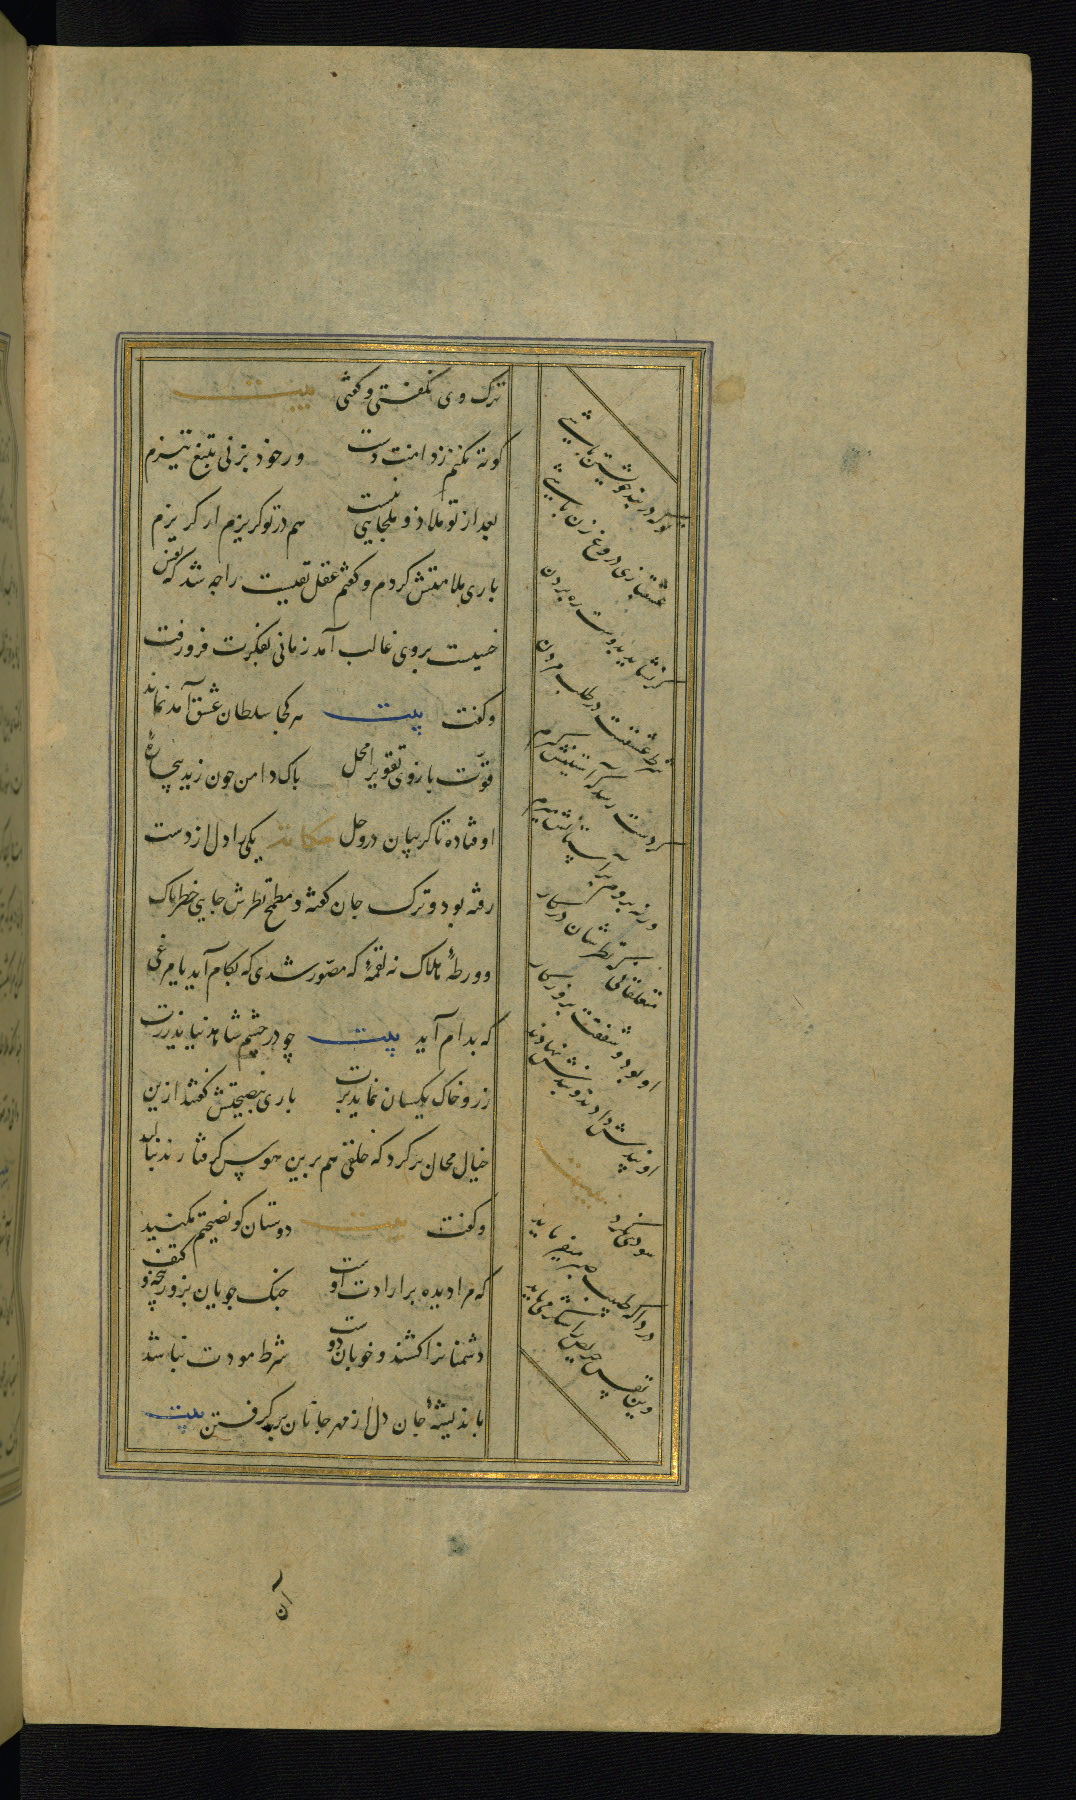 ترک وی نگفتی و گفتی بیت
کوته نکنم ز دامنت دست ور خود بزنی بتیغ تیزم
بعد از تو ملاذ و ملجایی نیست هم در تو گریزم ار گریزم
باری ملامتش کردم و گفتم عقل نفیست را چه شد که نفس
خسیست بروی غالب آمد زمانی بفکرت فرو رفت
و گفت بیت هر کجا سلطان عشق آمد نماند
قوّت بازوی تقوی را محل پاک دامن چون زید بیچارهٔ
اوفتاده تا گریبان در وحل حکایت یکی را دل از دست
رفته بود و ترک جان گفته و مطمح نظرش جایی خطرناک
و ورطهٔ هلاک نه لقمهٔ که مصوّر شدی که بکام آید یا مرغی
که بدام آید بیت چو در چشم شاهد نیاید زرت
زر و خاک یکسان نماید برت باری بنصیحتش گفتند ازین
خیال محال برگرد که خلقی هم برین هوس گرفتارند نباید
و گفت بیت دوستان کو نصیحتم مکنید
که مرا دیده بر ارادت اوست جنک جویان بزور پنجه و کتف
دشمنانرا کشند و خوبان دوست شرط مودت نباشد
باندیشهٔ جان دل از مهر جانان برگرفتن بیت
تو که در بند خویشتن باشی
عشقبازی دروغ زن باشی
گر نشاید بدوست ره بردن
شرط عشقست در طلب مردن
گر دست رسد که آستینش گیرم
ور نه بروم بر آستانش میرم
متعلقانی که نظرشان در کار
او بود و شفقت بروزگار
او پندش دادند و بندش نهادند
سودی نکرد بیت
دردا که طبیب صبر میفرماید
وین نفس حریص را شکر می باید
آن